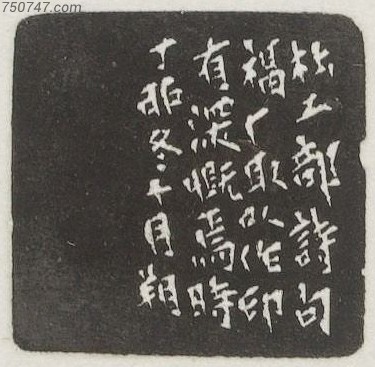 750747.com
杜工部詩句
取以作印
有深慨焉時
丁卯冬十月朔